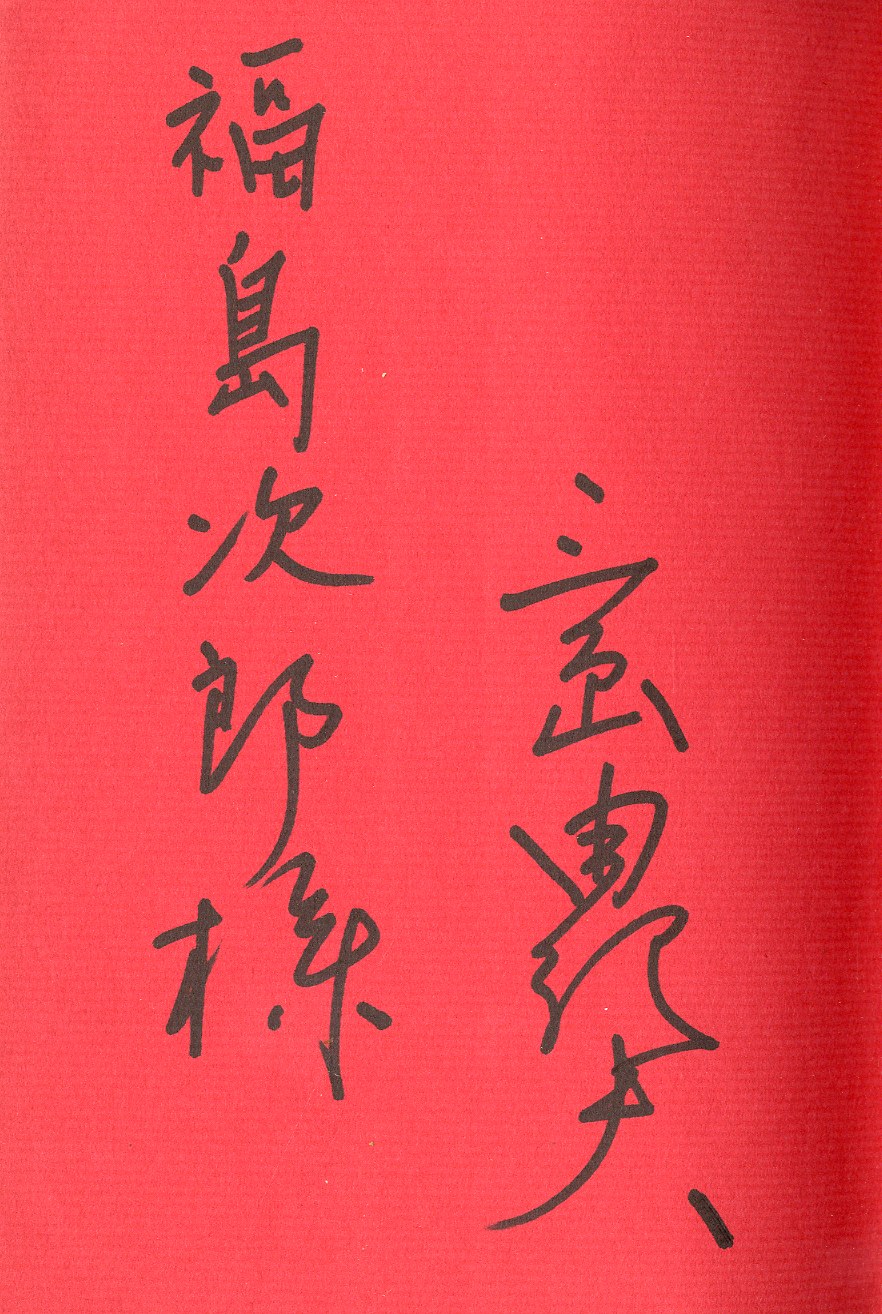 三島由紀夫
福島次郎様